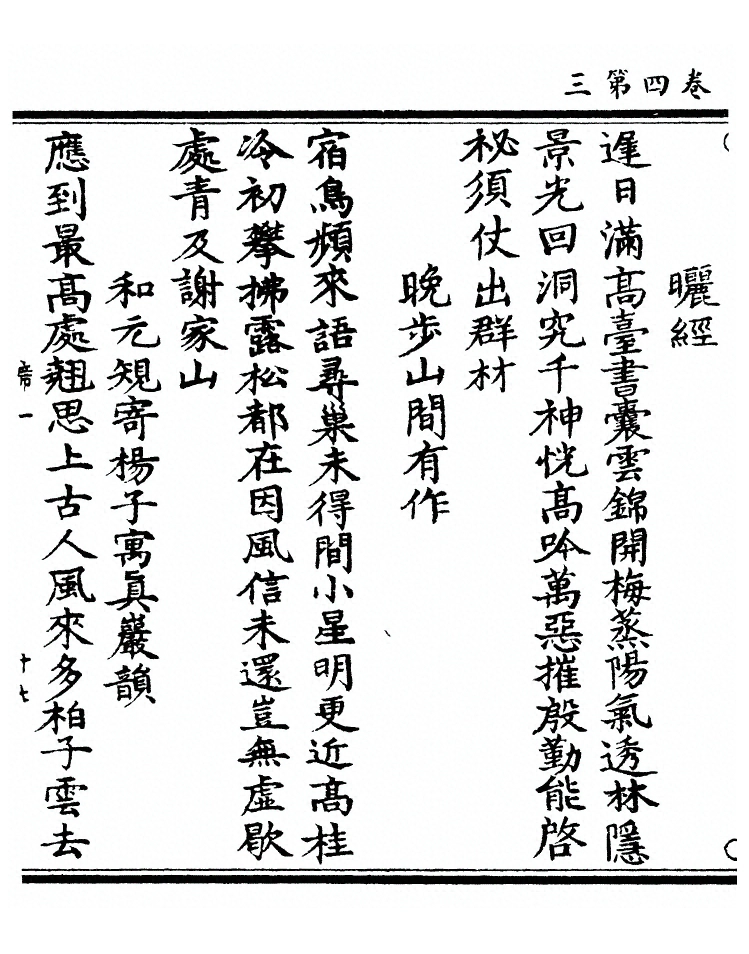 三第四卷
曬經
遲日滿高臺書囊雲錦開梅蒸陽氣透林隱
景光回洞究千神恍高吟萬惡摧殷勤能啓
秘須仗出群材
晚步山間有作
宿鳥頻來語尋巢未得間小星明更近高桂
冷初攀拂露松都在因風信未還豈無虛歇
處青及謝家山
和元規寄楊子寓真巖韻
應到最高處翹思上古人風來多柏子雲去
帝一
十七